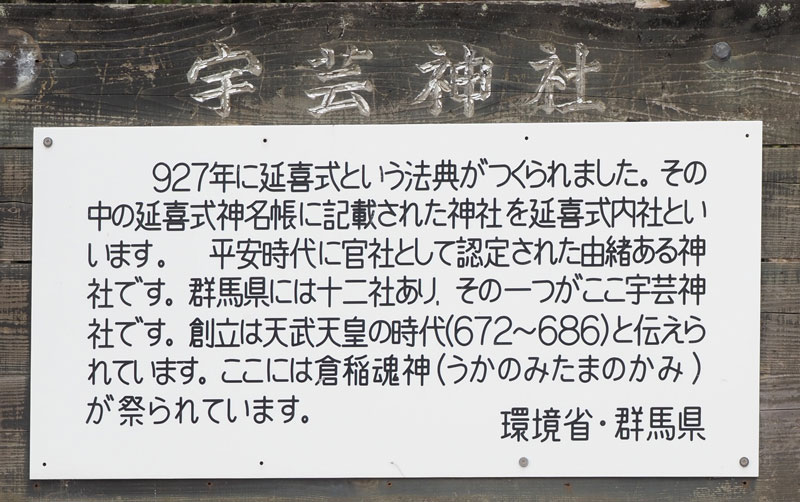 宇芸神社
927年に延喜式という法典がつくられました。その
中の延喜式神名帳に記載された神社を延喜式内社とい
います。 平安時代に官社として認定された由緒ある神
社です。群馬県には十二社あり、その一つがここ宇芸神
社です。創立は天武天皇の時代(672〜686)と伝えら
れています。ここには倉稲魂神(うかのみたまのかみ)
が祭られています。
環境省・群馬県